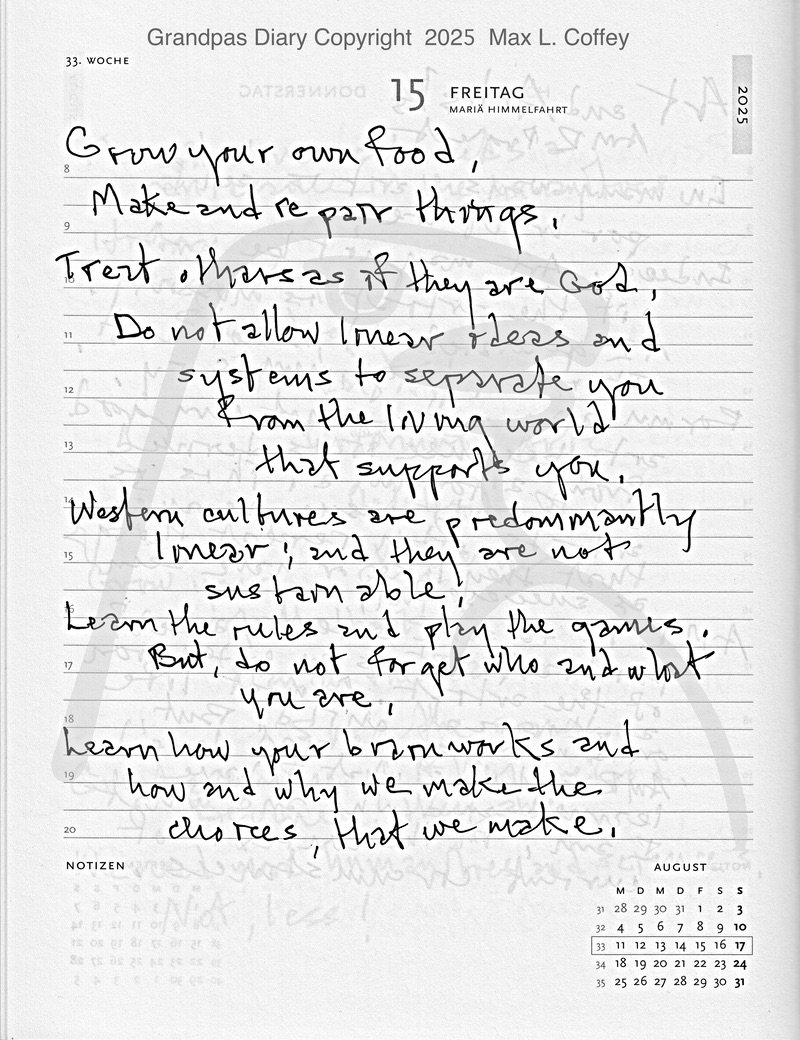 Grandpas Diary Copyright 2025 Max L. Coffey
33. WOCHE
15 FREITAG
MARIÄ HIMMELFAHRT
2025
Grow your own food,
8
Make and repair things,
9
Treat others as if they are God,
10
Do not allow linear ideas and
11
systems to separate you
12
from the living world
13
that supports you.
14
Western cultures are predominantly
linear; and they are not
15
sustainable!
16
Learn the rules and play the games.
But, do not forget who and what
17
you are,
18
Learn how your brain works and
how and why we make the
19
choices, that we make.
20
NOTIZEN
AUGUST
M D M D F S S
31 28 29 30 31 1 2 3
32 4 5 6 7 8 9 10
33 11 12 13 14 15 16 17
34 18 19 20 21 22 23 24
35 25 26 27 28 29 30 31